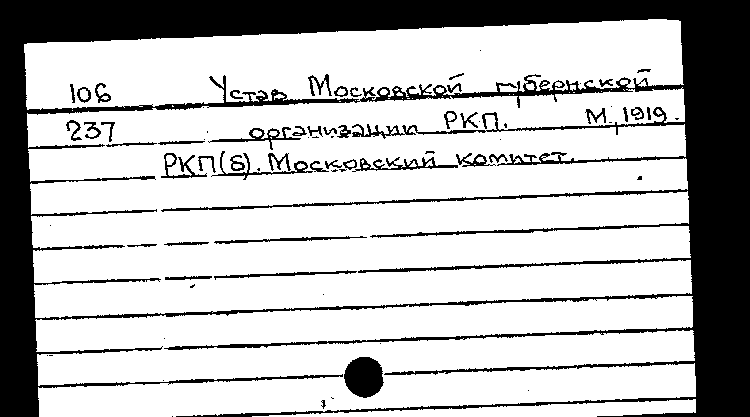 106 Устав Московской губернской
237 организации РКП. М., 1919.
РКП(б). Московский комитет.